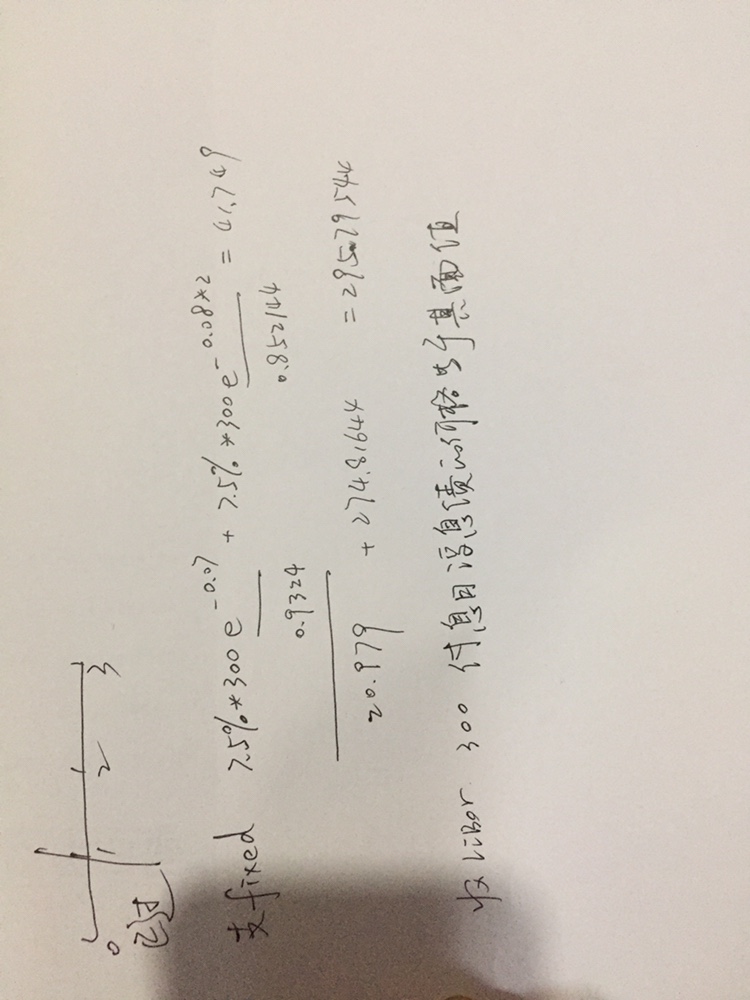 0 1 2 3
支 fixed 7.5%*300e^-0.07 + 7.5%*300e^-0.08*2 =
0.9324 0.852144
20.979 + 274.81644 = 295.79544
收 Libor 300 付息日浮息债的价格等于其面值